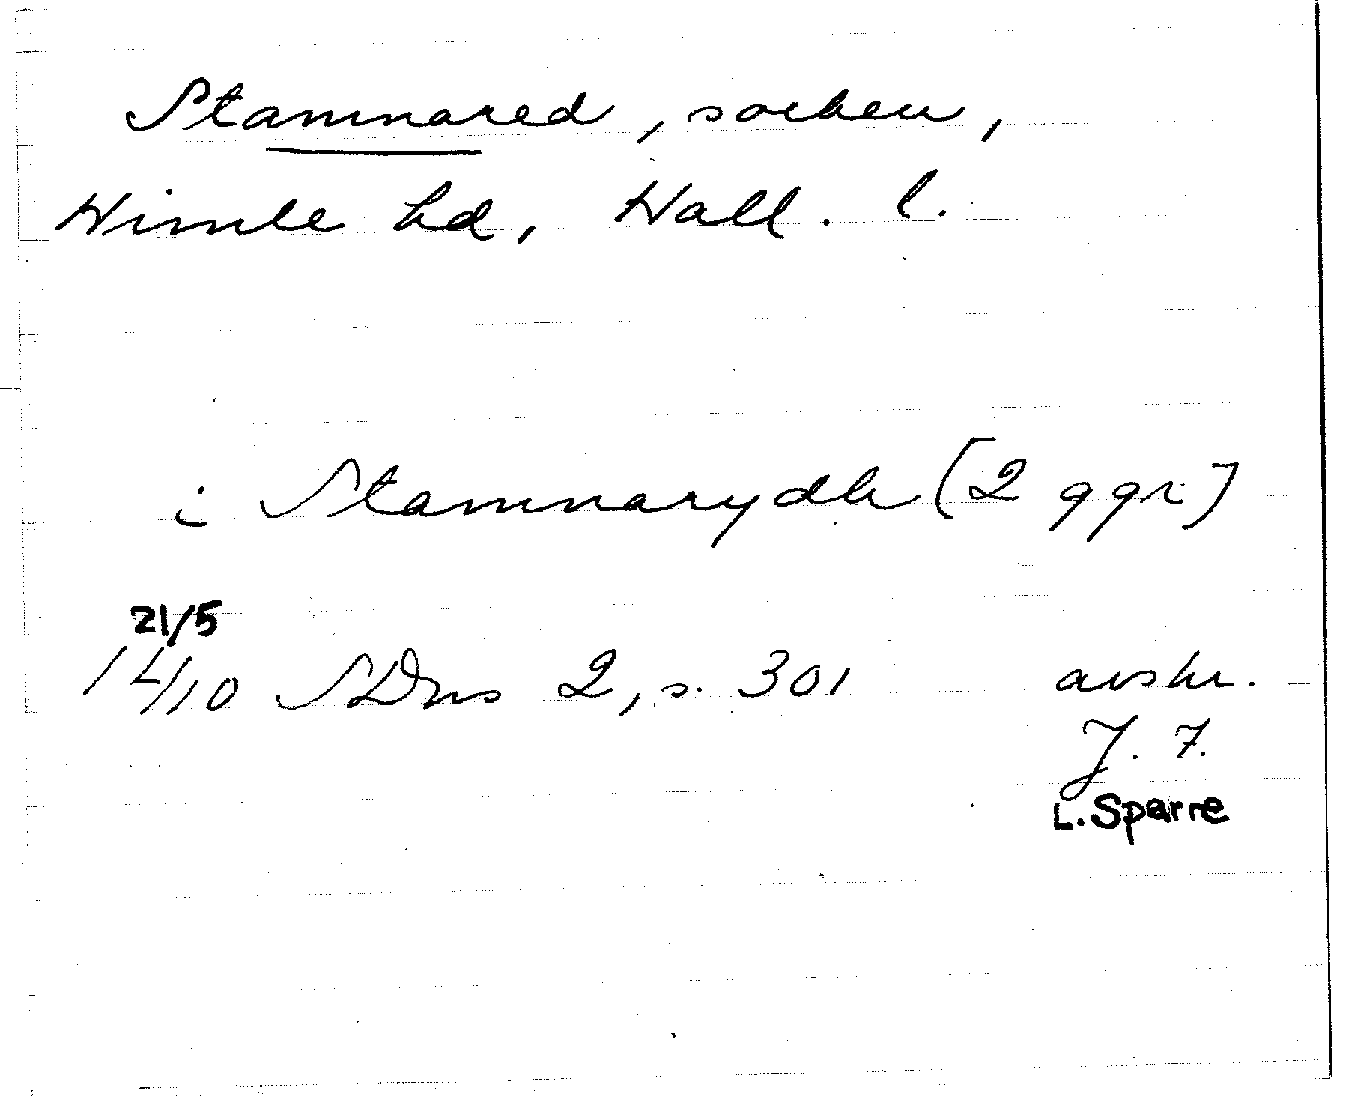 Stamnared, socken,
Himle hd, Hall. l.
i Stamnarydh (2 ggr)
21/5
1410 SDns 2, s. 301 avskr.
J. F.
L. Sparre